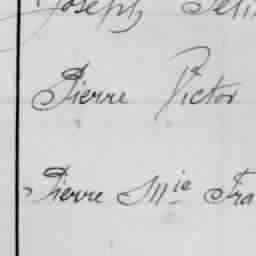 Joseph
Pierre Victor
Pierre Mie Fra